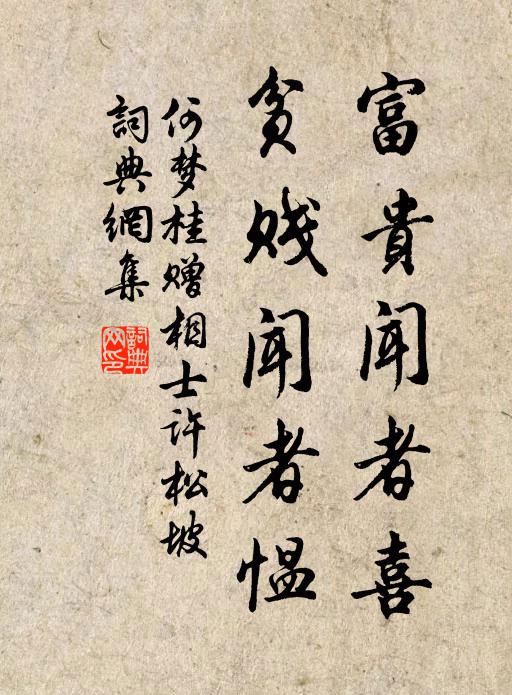 富貴闻者喜
貧贱闻者愠
何梦桂赠相士许松坡
詞典網集
詞典
网印